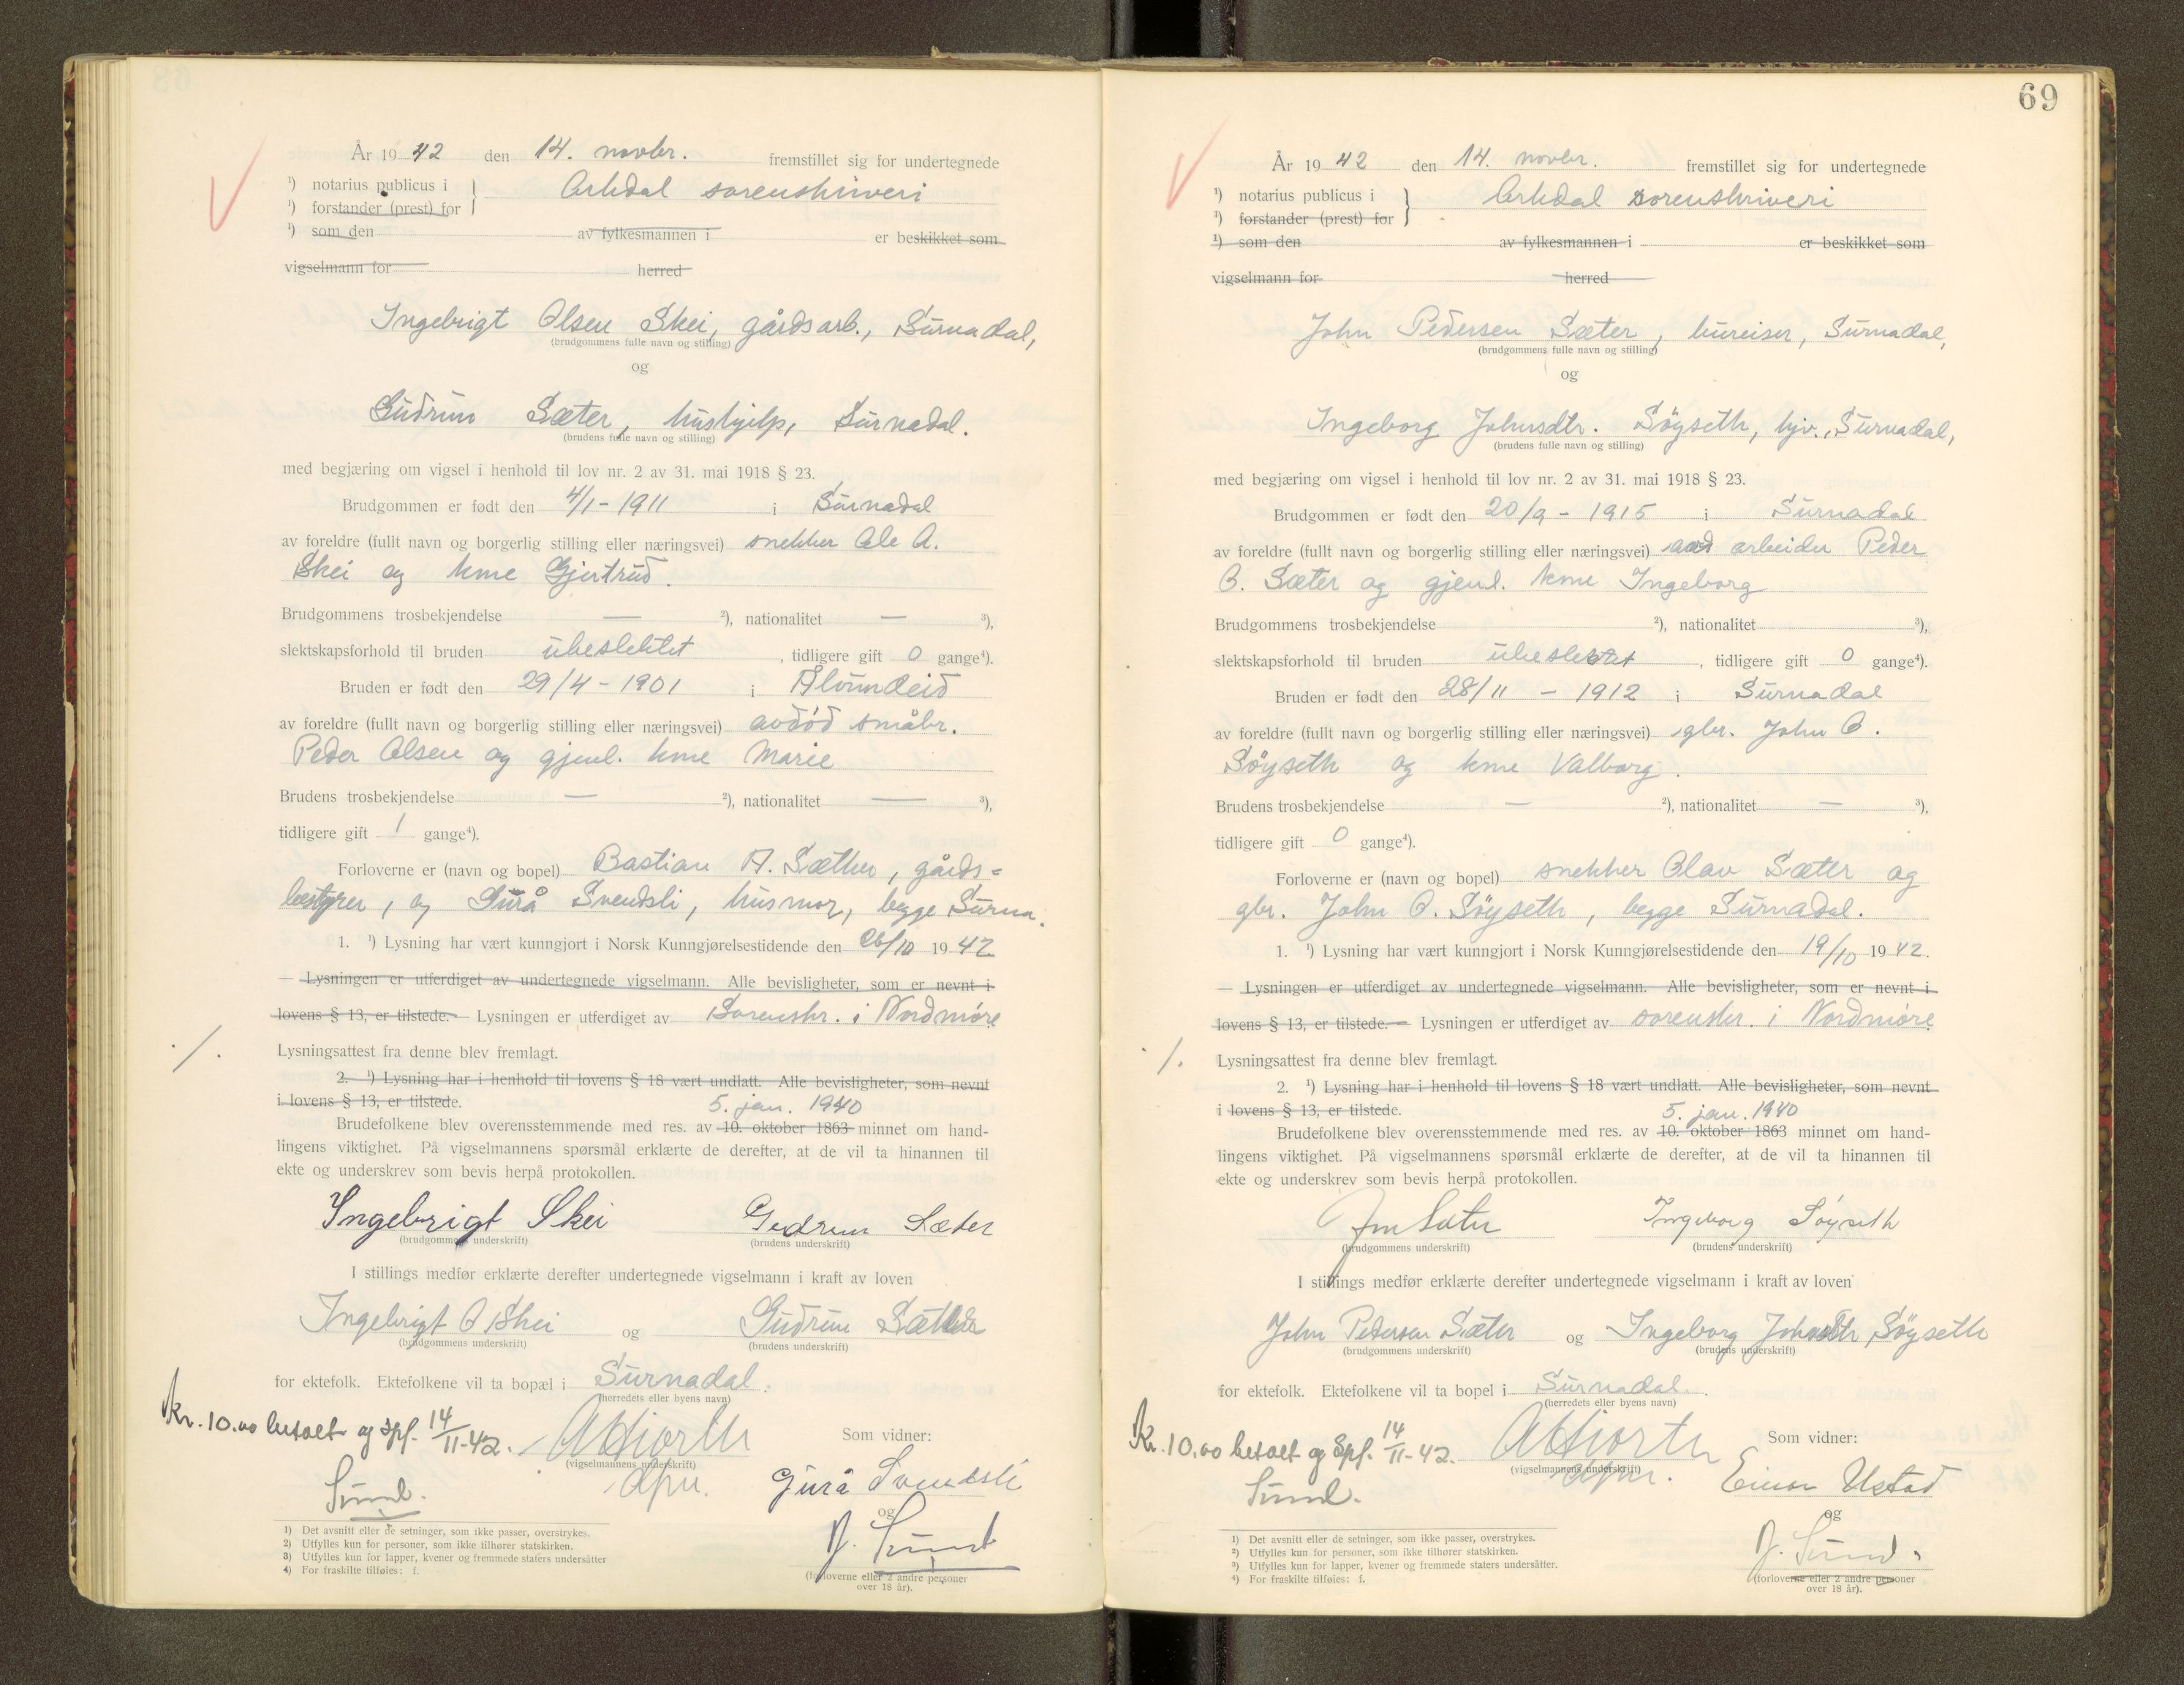 År 1942 den 14. novbr. fremstillet sig for undertegnede
¹) notarius publicus i
¹) forstander (prest) for
Orkdal sorenskriveri
¹) som den av fylkesmannen i er beskikket som
vigselmann for herred
Ingebrigt Olsen Skei, gårdsarb., Surnadal,
(brudgommens fulle navn og stilling)
og
Gudrun Sæter, hushjelp, Surnadal.
(brudens fulle navn og stilling)
med begjæring om vigsel i henhold til lov nr. 2 av 31. mai 1918 § 23.
Brudgommen er født den 4/1 - 1911 i Surnadal
av foreldre (fullt navn og borgerlig stilling eller næringsvei) snekker Ole A.
Skei og kme Gjertrud.
Brudgommens trosbekjendelse — ²), nationalitet — ³),
slektskapsforhold til bruden ubeslektet , tidligere gift 0 gange⁴).
Bruden er født den 29/4 - 1901 i Ålvundeid
av foreldre (fullt navn og borgerlig stilling eller næringsvei) avdød småbr.
Peder Olsen og gjenl. kme Marie
Brudens trosbekjendelse — ²), nationalitet — ³),
tidligere gift 1 gange⁴).
Forloverne er (navn og bopel) Bastian A. Sæther, gårds-
bestyrer, og Gurå Svendsli, husmor, begge Surna.
1. ¹) Lysning har vært kunngjort i Norsk Kunngjørelsestidende den /10 1942
— Lysningen er utferdiget av undertegnede vigselmann. Alle bevisligheter, som er nevnt i
lovens § 13, er tilstede. — Lysningen er utferdiget av Sorenskr. i Nordmøre
Lysningsattest fra denne blev fremlagt.
2. ¹) Lysning har i henhold til lovens § 18 vært undlatt. Alle bevisligheter, som nevnt
i lovens § 13, er tilstede.
5. jan. 1940
Brudefolkene blev overensstemmende med res. av 10. oktober 1863 minnet om hand-
lingens viktighet. På vigselmannens spørsmål erklærte de derefter, at de vil ta hinannen til
ekte og underskrev som bevis herpå protokollen.
Ingebrigt Skei Gudrun Sæter
(brudgommens underskrift) (brudens underskrift)
I stillings medfør erklærte derefter undertegnede vigselmann i kraft av loven
Ingebrigt O Skei og Gudrun Sæter
(brudgommens underskrift) (brudens underskrift)
for ektefolk. Ektefolkene vil ta bopæl i Surnadal.
(herredets eller byens navn)
Kr. 10.00 betalt og spf. 14/11-42. AHjorth Som vidner:
(vigselmannens underskrift)
Sund. dfm. Gurå Svendsli
og
J. Sund
(forloverne eller 2 andre personer
over 18 år).
1) Det avsnitt eller de setninger, som ikke passer, overstrykes.
2) Utfylles kun for personer, som ikke tilhører statskirken.
3) Utfylles kun for lapper, kvener og fremmede staters undersåtter
4) For fraskilte tilføies: f.
69
År 1942 den 14. novbr. fremstillet sig for undertegnede
¹) notarius publicus i
¹) forstander (prest) for
Orkdal sorenskriveri
¹) som den av fylkesmannen i er beskikket som
vigselmann for herred
John Pedersen Sæter, bureiser, Surnadal,
(brudgommens fulle navn og stilling)
og
Ingeborg Johnsdtr. Söyseth, hjv., Surnadal,
(brudens fulle navn og stilling)
med begjæring om vigsel i henhold til lov nr. 2 av 31. mai 1918 § 23.
Brudgommen er født den 20/9 - 1915 i Surnadal
av foreldre (fullt navn og borgerlig stilling eller næringsvei) avd arbeider Peder
O. Sæter og gjenl. kme Ingeborg
Brudgommens trosbekjendelse ²), nationalitet ³),
slektskapsforhold til bruden ubeslektet , tidligere gift 0 gange⁴).
Bruden er født den 28/11 - 1912 i Surnadal
av foreldre (fullt navn og borgerlig stilling eller næringsvei) gbr. John O.
Söyseth og kme Valborg.
Brudens trosbekjendelse — ²), nationalitet — ³),
tidligere gift 0 gange⁴).
Forloverne er (navn og bopel) snekker Olav Sæter og
gbr. John O. Söyseth, begge Surnadal.
1. ¹) Lysning har vært kunngjort i Norsk Kunngjørelsestidende den 19/10 1942.
— Lysningen er utferdiget av undertegnede vigselmann. Alle bevisligheter, som er nevnt i
lovens § 13, er tilstede. — Lysningen er utferdiget av sorenskr. i Nordmøre
Lysningsattest fra denne blev fremlagt.
2. ¹) Lysning har i henhold til lovens § 18 vært undlatt. Alle bevisligheter, som nevnt
i lovens § 13, er tilstede.
5. jan. 1940
Brudefolkene blev overensstemmende med res. av 10. oktober 1863 minnet om hand-
lingens viktighet. På vigselmannens spørsmål erklærte de derefter, at de vil ta hinannen til
ekte og underskrev som bevis herpå protokollen.
Jon Sæter Ingeborg Söyseth
(brudgommens underskrift) (brudens underskrift)
I stillings medfør erklærte derefter undertegnede vigselmann i kraft av loven
John Pedersen Sæter og Ingeborg Johnsdtr Söyseth
(brudgommens underskrift) (brudens underskrift)
for ektefolk. Ektefolkene vil ta bopel i Surnadal.
(herredets eller byens navn)
Kr. 10.00 betalt og spf. 14/11-42. AHjorth Som vidner:
(vigselmannens underskrift)
Sund. dfm. Einar Ustad
og
J. Sund.
(forloverne eller 2 andre personer
over 18 år).
1) Det avsnitt eller de setninger, som ikke passer, overstrykes.
2) Utfylles kun for personer, som ikke tilhører statskirken.
3) Utfylles kun for lapper, kvener og fremmede staters undersåtter.
4) For fraskilte tilføies: f.